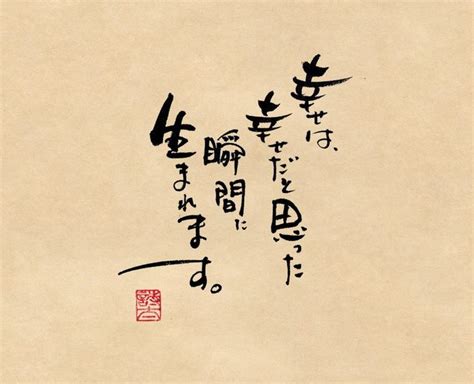 幸せは、
幸せだと思った
瞬間に
生まれます。